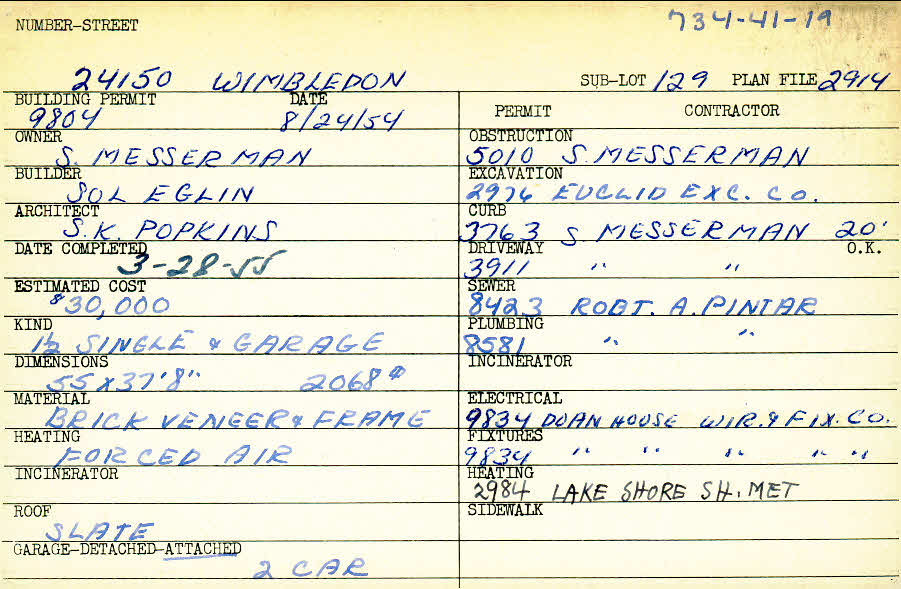 734-41-19
NUMBER-STREET
24150 WIMBLEDON SUB-LOT 129 PLAN FILE 2914
BUILDING PERMIT DATE
9804 8/24/54
OWNER
S. MESSERMAN
BUILDER
SOL EGLIN
ARCHITECT
S.K. POPKINS
DATE COMPLETED
3-28-55
ESTIMATED COST
$30,000
KIND
1½ SINGLE & GARAGE
DIMENSIONS
55 x 37'8" 2068 #
MATERIAL
BRICK VENEER & FRAME
HEATING
FORCED AIR
INCINERATOR
ROOF
SLATE
GARAGE-DETACHED-ATTACHED
2 CAR
PERMIT CONTRACTOR
OBSTRUCTION
5010 S. MESSERMAN
EXCAVATION
2976 EUCLID EXC. CO.
CURB
3763 S. MESSERMAN 20'
DRIVEWAY O.K.
3911 " "
SEWER
8423 ROBT. A. PINTAR
PLUMBING
8581 " "
INCINERATOR
ELECTRICAL
9834 DOAN HOUSE WIR. & FIX. CO.
FIXTURES
9834 " " " " "
HEATING
2984 LAKE SHORE SH. MET
SIDEWALK